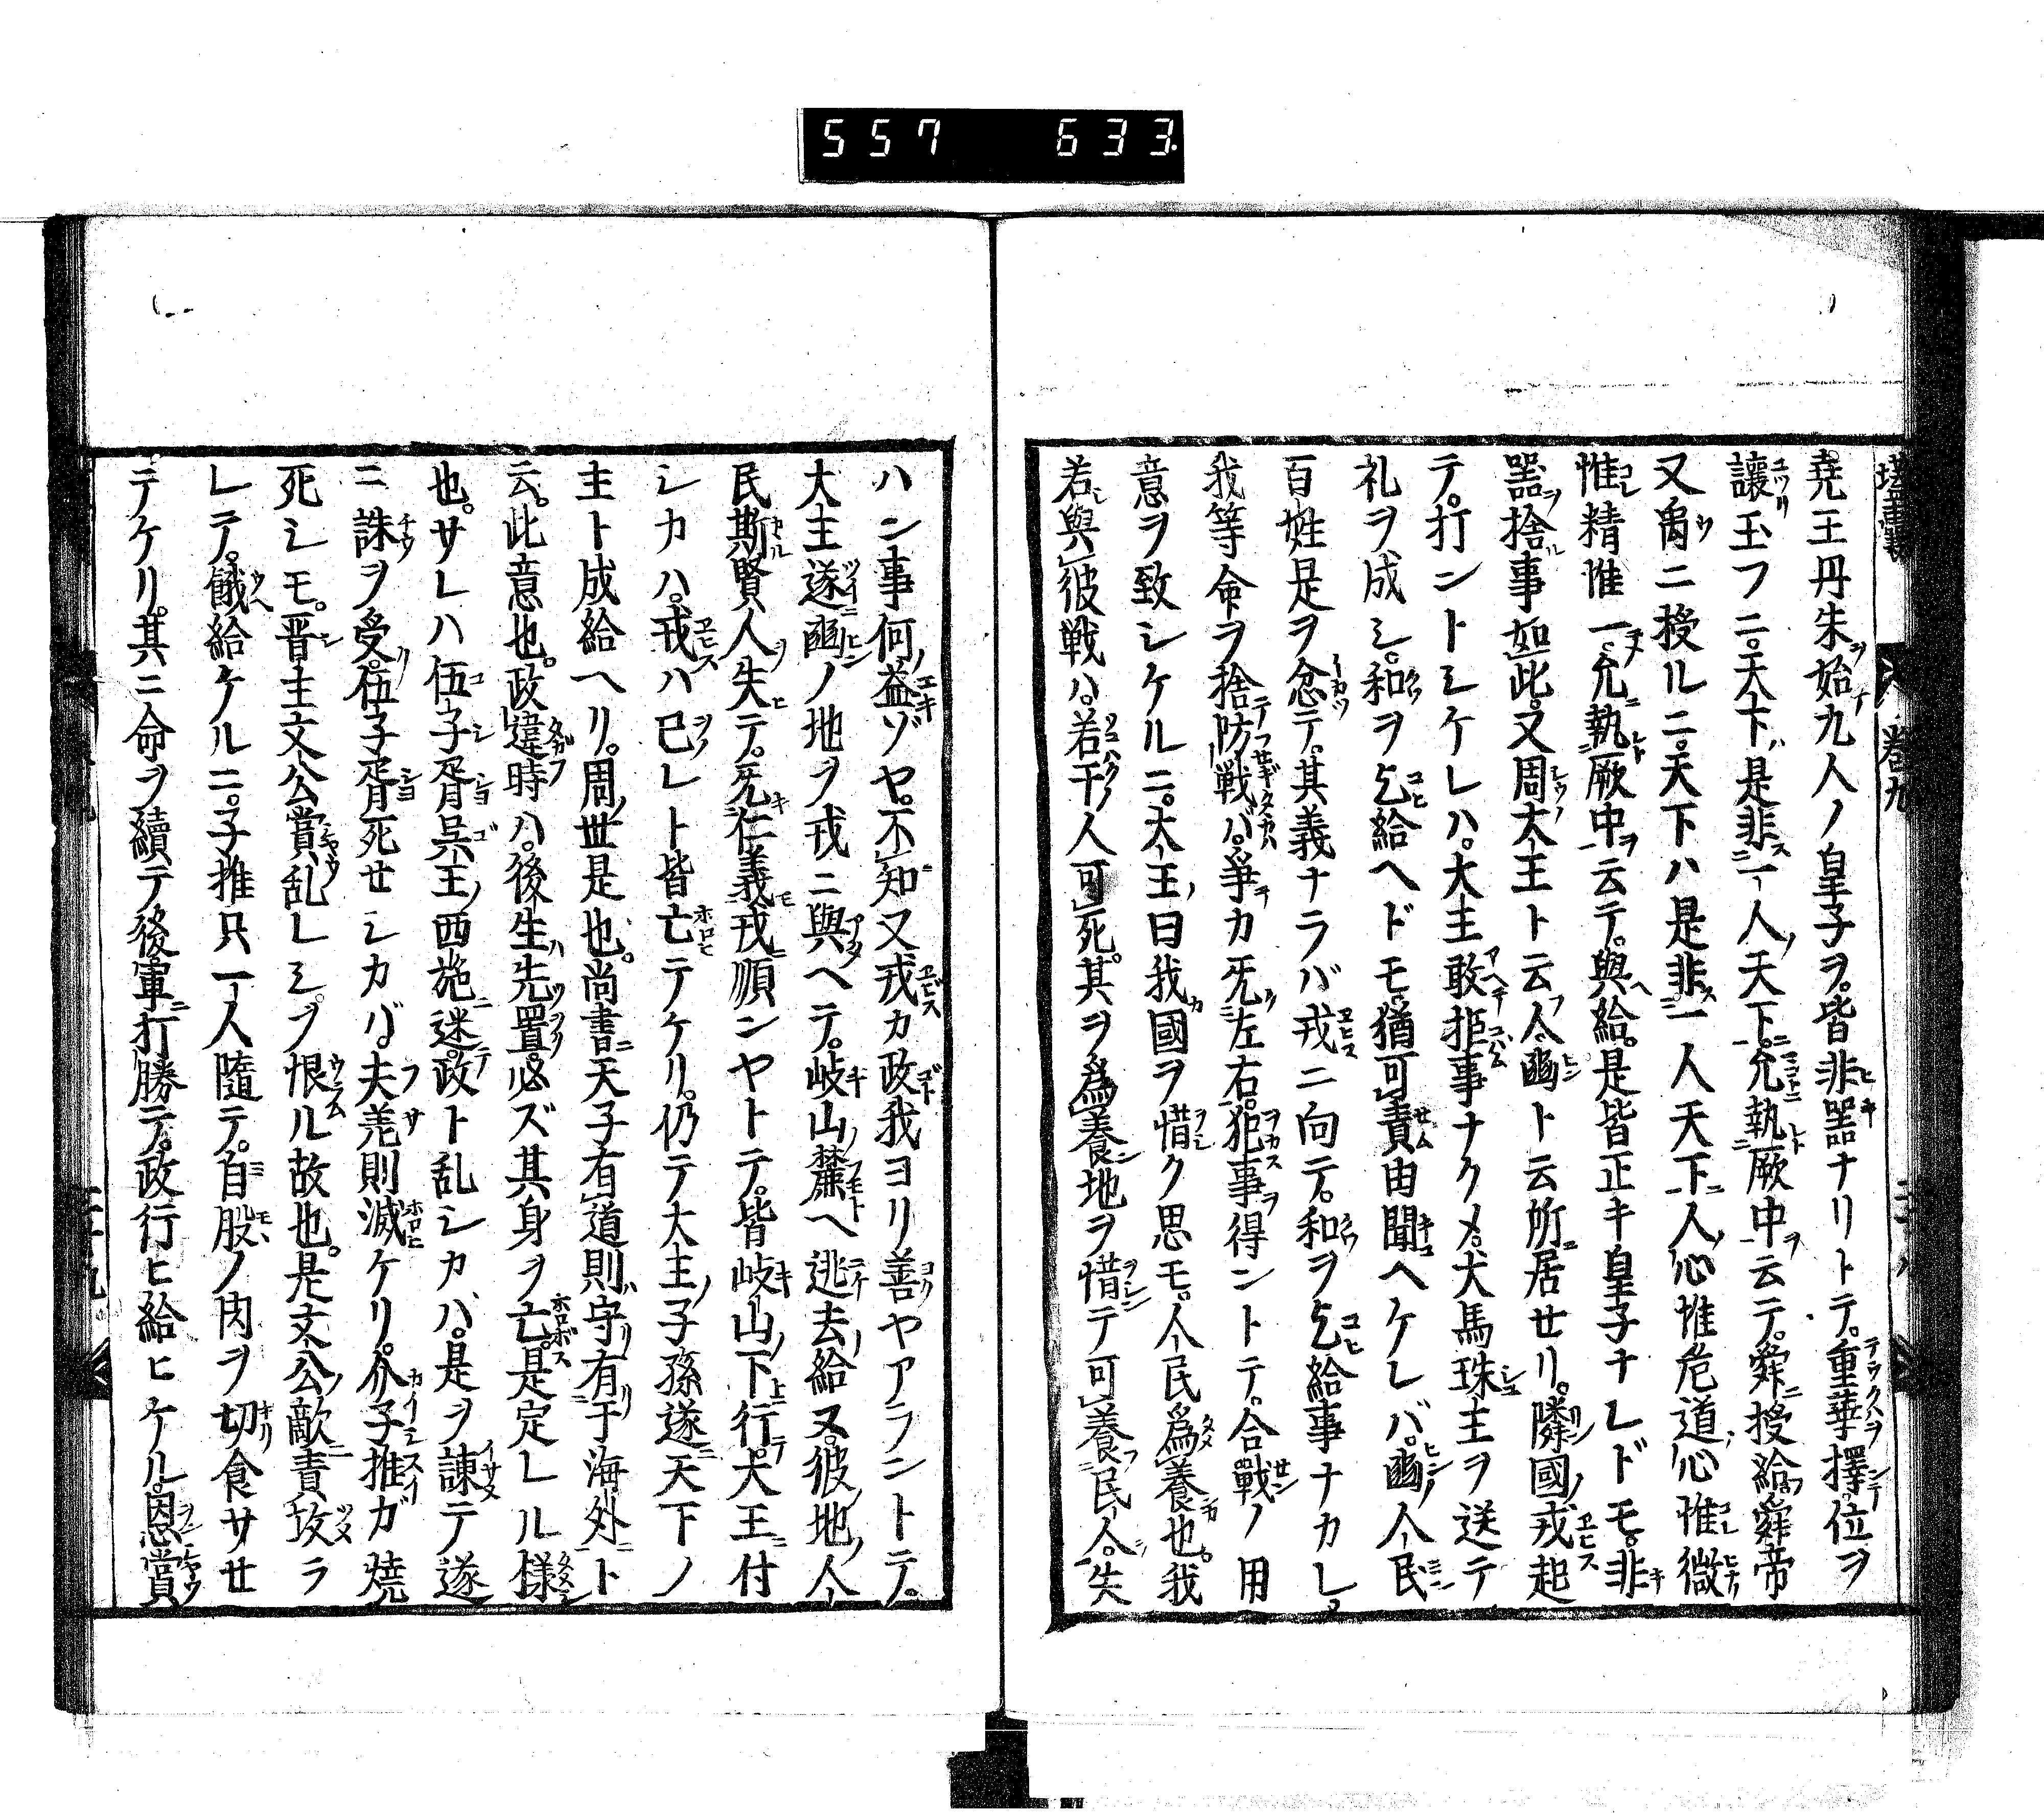 557 633
堯王丹朱始九人ノ皇子ヲ。皆非噐ナリトテ。重華擇位ヲ
讓玉フニ。天下是非一人天下。允執厥中云テ。舜授給。舜帝
又禹ニ授ルニ。天下ハ是非一人天下。人心惟危道心惟微
惟精惟一。允執厥中云テ。與給。是皆正キ皇子ナレドモ。非
噐捨事如此。又周大王ト云人豳ト云所居セリ。隣國戎起
テ。打ントシケレハ。大主敢拒事ナクメ。犬馬珠主ヲ送テ
礼ヲ成シ。和ヲ乞給ヘドモ。猶可責由聞ヘケレバ。豳人民
百姓是ヲ忿テ。其義ナラバ戎ニ向テ。和ヲ乞給事ナカレ。
我等命ヲ捨防戦バ。争カ旡左右。犯事得ントテ。合戰ノ用
意ヲ致シケルニ。大王曰我國ヲ惜ク思モ。人民為養也。我
若與彼戦ハ。若干人可死。其ヲ為養地ヲ惜テ可養民人。失
ハン事何益ゾヤ。不知又戎カ政我ヨリ善ヤアラントテ。
大主遂豳ノ地ヲ戎ニ與ヘテ。岐山麓ヘ逃去給又。彼地人
民斯賢人失テ。旡仁義戎順ンヤトテ。皆岐山下行。犬王付
シカハ。戎ハ已レト皆亡テケリ。仍テ大主子孫遂天下ノ
主ト成給ヘリ。周世是也。尚書天子有道則守有于海外ト
云。此意也。政違時ハ。後生先置。必ズ其身ヲ亡。是定レル様
也。サレハ伍子胥呉王西施迷。政ト乱シカハ。是ヲ諌テ遂
ニ誅ヲ受。伍子胥死セシカバ夫差則滅ケリ。介子推ガ焼
死シモ。晋主文公賞乱レシヲ恨ル故也。是文公敵責攻ラ
レテ。餓給ケルニ。子推只一人隨テ。自股ノ肉ヲ切食サセ
テケリ。其ニ命ヲ續テ後軍打勝テ。政行ヒ給ヒケル。恩賞